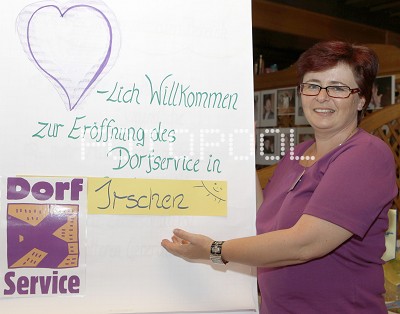 -lich Willkommen
zur Eröffnung des
Dorfservice in
Irschen
Dorf
Service
FOTOPOOL